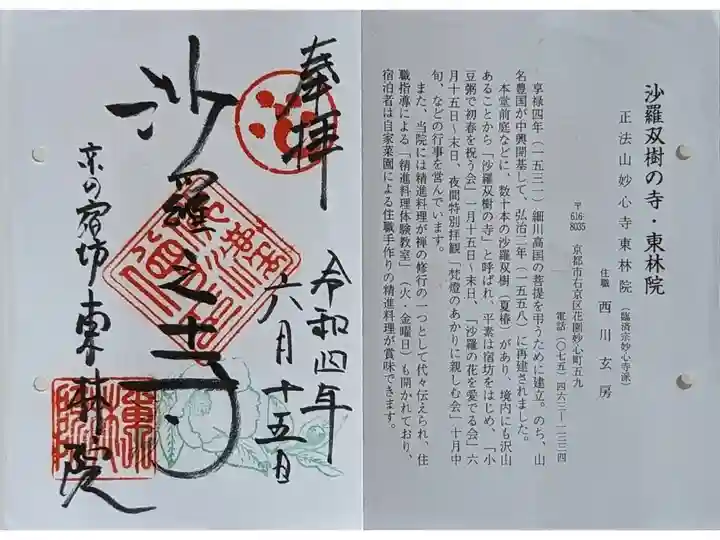 奉拝
沙羅之寺
令和四年
六月十五日
京の宿坊 東林院
沙羅双樹の寺・東林院
正法山妙心寺東林院(臨済宗妙心寺派)
住職 西川玄房
〒616-8035 京都市右京区花園妙心町五九
電話(〇七五)四六三―一三三四
享禄四年(一五三一)細川高国の菩提を弔うために建立。のち、山
名豊国が中興開基して、弘治二年(一五五八)に再建されました。
本堂前庭などに、数十本の沙羅双樹(夏椿)があり、境内にも沢山
あることから「沙羅双樹の寺」と呼ばれ、平素は宿坊をはじめ、「小
豆粥で初春を祝う会」一月十五日~末日、「沙羅の花を愛でる会」六
月十五日~末日、夜間特別拝観「梵燈のあかりに親しむ会」十月中
旬、などの行事を営んでいます。
また、当院には精進料理が禅の修行の一つとして代々伝えられ、住
職指導による「精進料理体験教室」(火・金曜日)も開かれており、
宿泊者は自家菜園による住職手作りの精進料理が賞味できます。